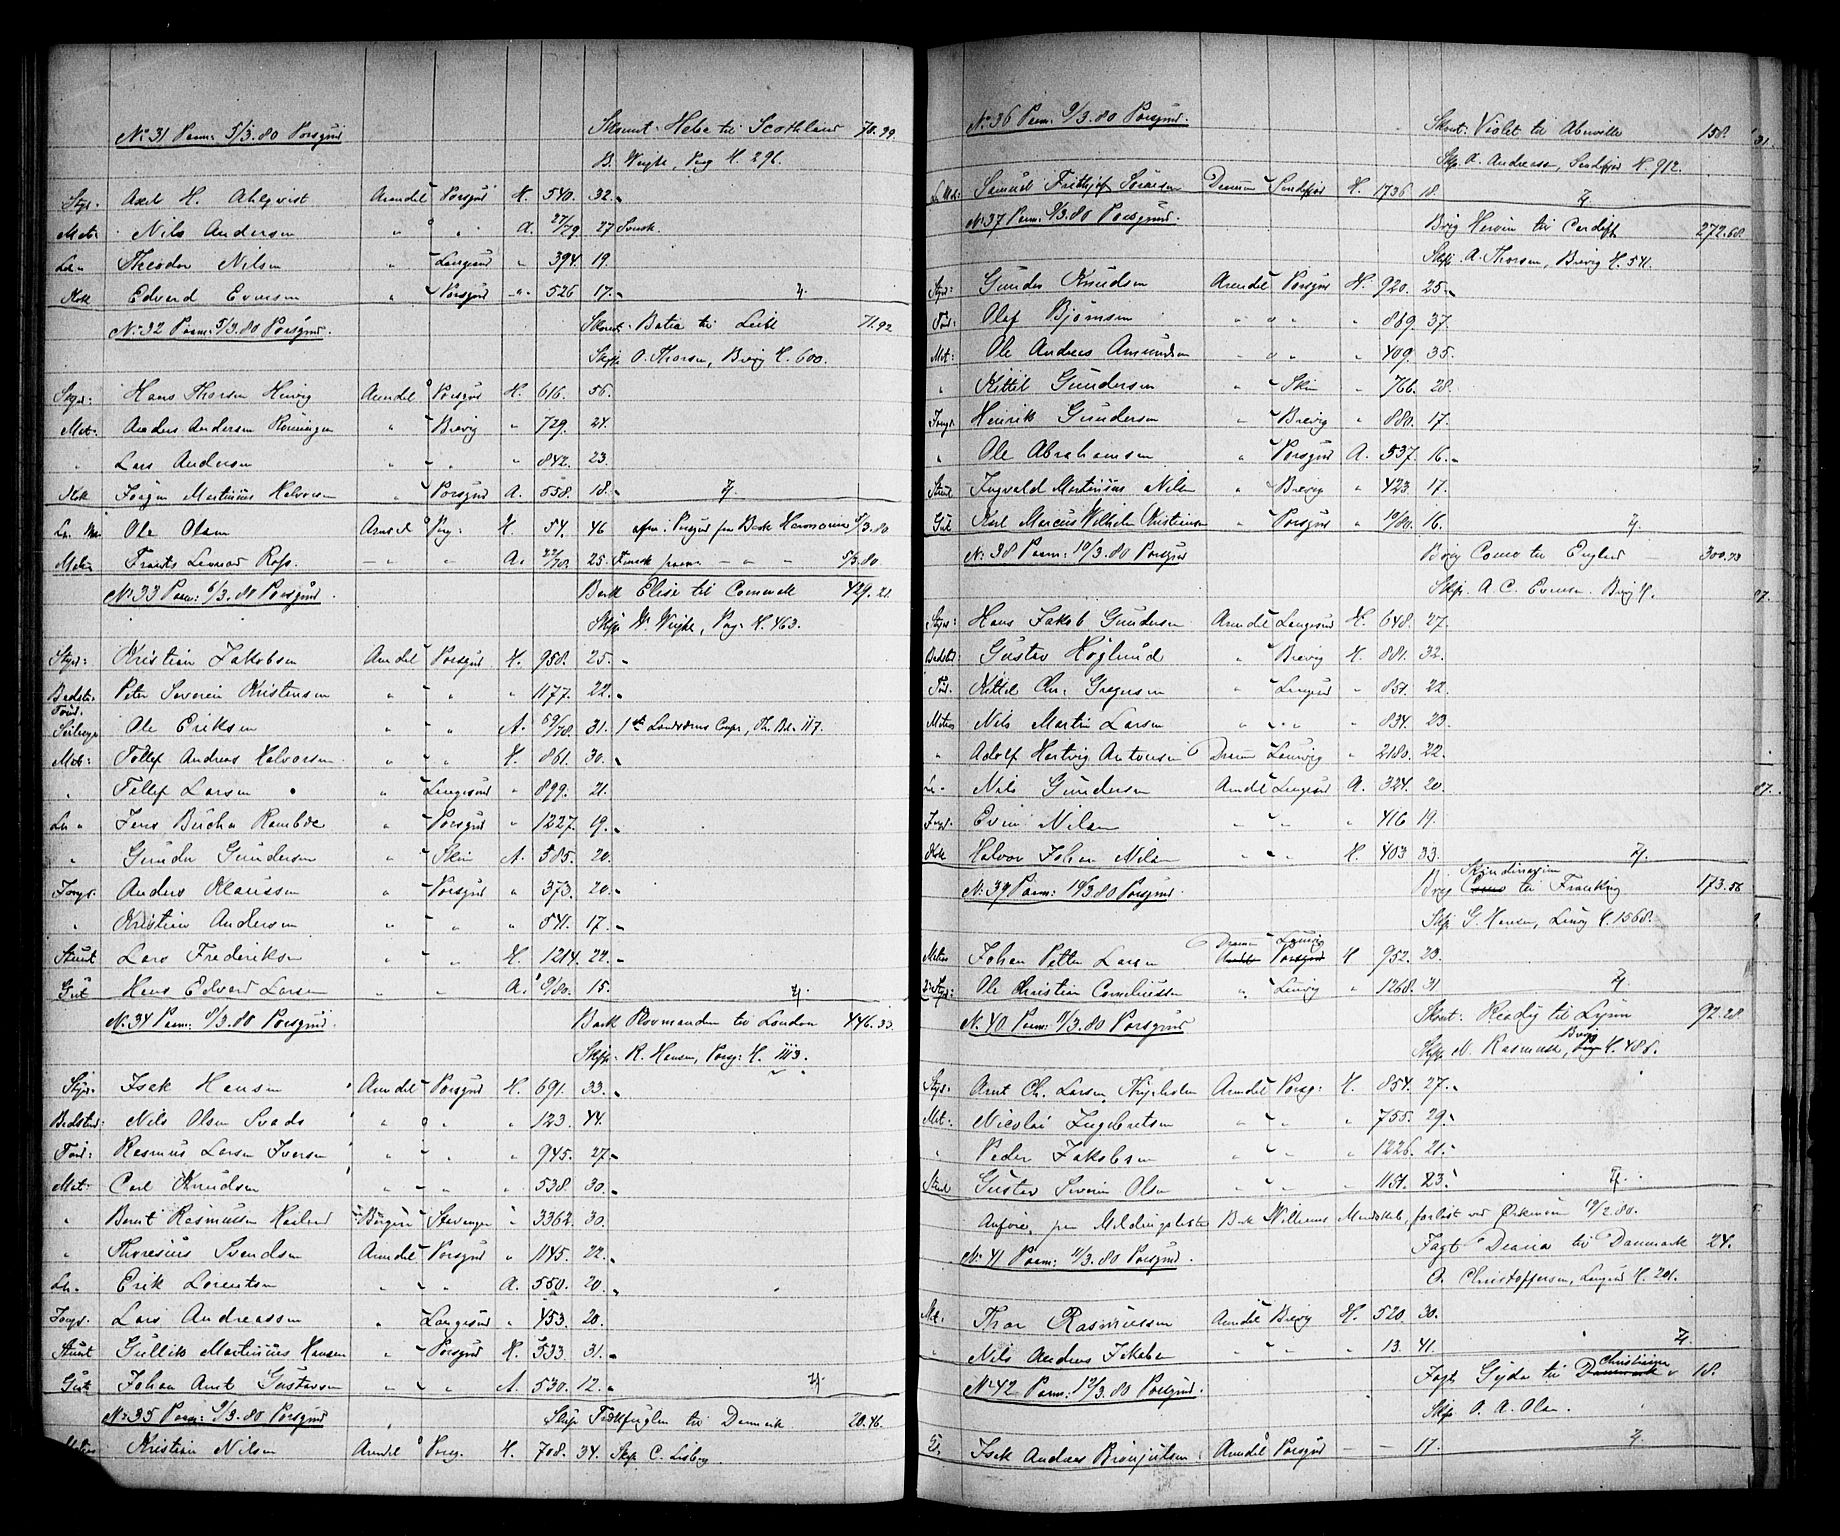 No 31 Paam: 5/3.80 Porsgrd Skonnt. Hebe til Scothland 70.99
B. Weyhe, Porsg H. 296.
Styr: Axel H. Ahlqvist Arendel Porsgrd H. 540. 32.
Mat: Nils Andersen " " A. 27/79. 27 Svensk.
L " Theodor Nilsen " Langesund " 394. 19.
Kok Edvard Evensen " Porsgrd " 526 17.
No 32 Paam: 5/3.80 Porsgrund. Skonnt. til Leith 71.92
Skipp. O. Thorsen, Brevig H. 600.
Styr: Hans Thorsen Arendel Porsgrd H. 616. 56.
Mat: Anders Andersen Rønningen " Brevig " 729. 24.
" Lars Andersen " " " 842. 23.
Kok Jørgen Martinius Halvorsen " Porsgrd A. 558. 18.
L. Ma Ole Olsen Arendel Porsg: H. 54. 46 afm: i Porsgrd fra Bark 5/3.80
Matr: " " A. 25. Finsk 5/3.80.
No 33 Paam: 6/3.80 Porsgrund. Bark Elise til 429.21
Skipp. W. Weyhe, Porsg. H. 463.
Styr: Kristian Jakobsen Arendel Porsgrd H. 958. 25.
Bedst. Peter Severin Kristensen " " " 1177. 22.
Tøm.
Ole Eriksen " " A. 59/78. 31.
Mat: Tollef Andreas Halvorsen " " H. 861. 30.
" Tellef Larsen " Langesund " 899. 21.
L " Jens " Porsgrd " 1227. 19.
" Gunder Gundersen " Skien A. 585. 20.
Jungm. Anders Klaussen " Porsgrd " 373. 20.
" Kristian Andersen " " " 541. 17.
Stuert Lars Frederiksen " " H. 1214. 22.
Gut Hans Edvard Larsen " " A. 6/80. 15.
No 34 Paam: 8/3.80 Porsgrund. Bark til London 446.33
Skipp. R. Hansen, Porsg: H. 1113.
Styr: Isak Hansen Arendel Porsgrd H. 691. 33.
Bedstmd: Nils Olsen " " " 123. 44.
Tøm: Rasmus Larsen Iversen " " " 945. 27.
Mat: Carl Knudsen " " " 538. 30.
" Bernt Rasmussen Bergen Stavanger " 3362. 30.
" Thoresius Svendsen Arendel Porsgrd " 1145. 22.
L " Erik Lorentsen " " A. 550. 20.
Jungm. Lars Andreassen " Langesund " 453. 20.
Stuert Gullik Martinius Hansen " Porsgrd H. 533. 31.
Gut Johan Arnt Gustavsen " " A. 530. 12.
No 35 Paam: 9/3.80 Porsgrund til Danmark 20.46.
Matros Kristian Nilsen Arendel Porsg. H. 708. 34. Skip C. Lisberg.
No 36 Paam: 9/3.80 Porsgrund. Skont: Violet til Abbeville 158.
Skp. A. Andersen, Sandefjor H. 912.
Samuel Frithjof Sørensen Drammen Sandefjor H. 1736 18.
No 37 Paam: 9/3.80 Porsgrund. Brig til Cardiff 272.68
Skp. A. Thorsen, Brevig H. 541.
Styr: Gunder Knudsen Arendel Porsgrd H. 920. 25.
Tøm: Olaf Bjørnsen " " " 889. 37.
Mat: Ole Andreas Amundsen " " " 409. 35.
" Kittil Gundersen " Skien " 766. 28.
Jungm Henrik Gundersen " Brevig " 880. 17.
" Ole Abrahamsen " Porsgrd A. 537. 16.
Stuert Ingvald Martinius Nilsen " Brevig " 423 17.
Gut Karl Marcus Wilhelm Kristiansen " Porsgrd " 10/80. 16.
No 38 Paam: 10/3.80 Porsgrd Brig Como til England 300.73
Skp. A. C. Evensen. Brevig H.
Styr: Hans Jakob Gundersen Arendel Langesund H. 648. 27.
Bedstd Gustav Høglund " Brevig H. 881. 32.
Tøm. Kittil Chr. Gregersen " Langesund " 851. 22.
Matros Nils Martin Larsen " " " 834. 23.
" Adolf Hartvig Antonsen Drammen Laurvig " 2180. 22.
L. Nils Gundersen Arendel Langesund A. 324. 20.
Jungm. Even Nilsen " " " 416 19.
Kok Halvor Johan Nilsen " " H. 403 33.
No 39 Paam: 10/3.80 Porsgrund. Brig Como Skandinavien til 173.56
Skp. G. Hansen, Laurvig H. 1568.
Matros Johan Petter Larsen Drammen Laurvig Arendel Porsgrund H 952. 23.
Styr: Ole Christian Corneliussen " Laurvig " 1268. 31
No 40 Paam: 11/3.80 Porsgrund Skont: Ready til Lynn 92.28
Skp. N. Rasmussen, Brevig H. 486.
Styr: Arnt Ch. Larsen Arendel Porsg: H. 854. 27.
Mat: Nicolai Ingebretsen " " " 755. 29.
" Peder Jakobsen " " " 1226. 21.
Stuert Gustav Severin Olsen " " " 1151. 23.
Anføres pr. Meldingsliste Bark Williams Mandskab, forlist ved 19/2 80.
No 41 Paam: 11/3.80 Porsgrund. Jagt Diana til Danmark 24.
O. Christoffersen, Langesund H. 201.
Mat. Thor Rasmussen Arendel Brevig H. 520. 30.
" Nils Andreas Jakobsen " " " 13. 41.
No 42 Paam: 12/3.80 Porsgrund Jagt Gyda til Danmark Christiania 18.
Skp. O. A. Olsen.
Isak Andreas Arendel Porsgrd — — 17.